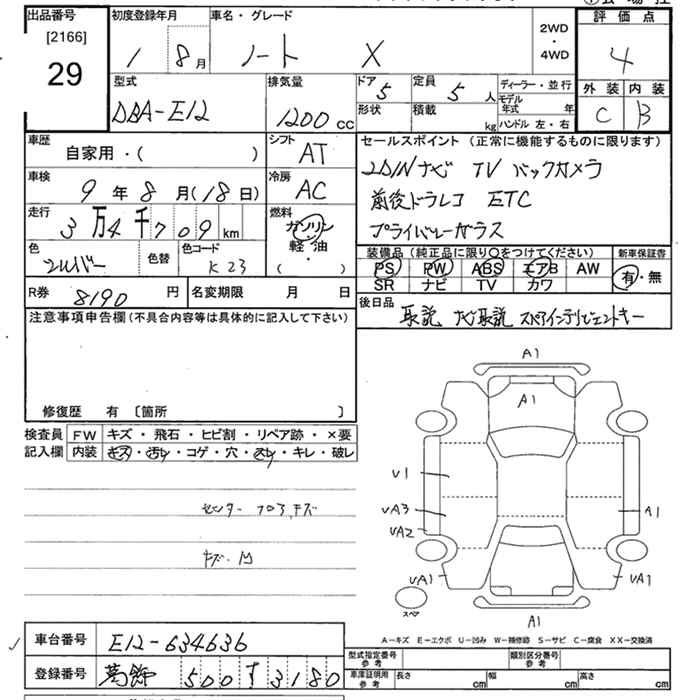 出品番号 初度登録年月 車名・グレード 評価点
[2166] 2WD
29 1 8月 ノート X ・ 4
4WD
型式 排気量 ドア 定員 ディーラー・並行 外装 内装
DBA-E12 1200cc 5 5人 モデル年式 年 C B
形状 積載 kg ハンドル 左・右
車歴 シフト セールスポイント(正常に機能するものに限ります)
自家用・( ) AT 2DINナビ TV バックカメラ
車検 冷房 前後ドラレコ ETC
9年8月(18日) AC プライバシーガラス
走行 燃料
3万4千709km ガソリン
色 色替 色コード 軽油 装備品(純正品に限り○をつけてください) 新車保証書
シルバー K23 ( ) PS PW ABS エアB AW 有・無
SR ナビ TV カワ
R券 8190円 名変期限 月 日 後日品
取説 ナビ取説 スペアインテリジェントキー
注意事項申告欄(不具合内容等は具体的に記入して下さい)
修復歴 有 〔箇所 〕
検査員 FW キズ・飛石・ヒビ割・リペア跡・×要
記入欄 内装 キズ・汚レ・コゲ・穴・スレ・キレ・破レ
A1
A1
U1
UA3
A1
UA2
UA1 UA1
スペア
A1
センターフロア、キズ
キズ・凹
A-キズ E-エクボ U-凹み W-補修跡 S-サビ C-腐食 XX-交換済
車台番号 E12-634636
型式指定番号 参考 類別区分番号 参考
登録番号 葛飾 500 す 3180
車庫証明用 参考 長さ cm 幅 cm 高さ cm